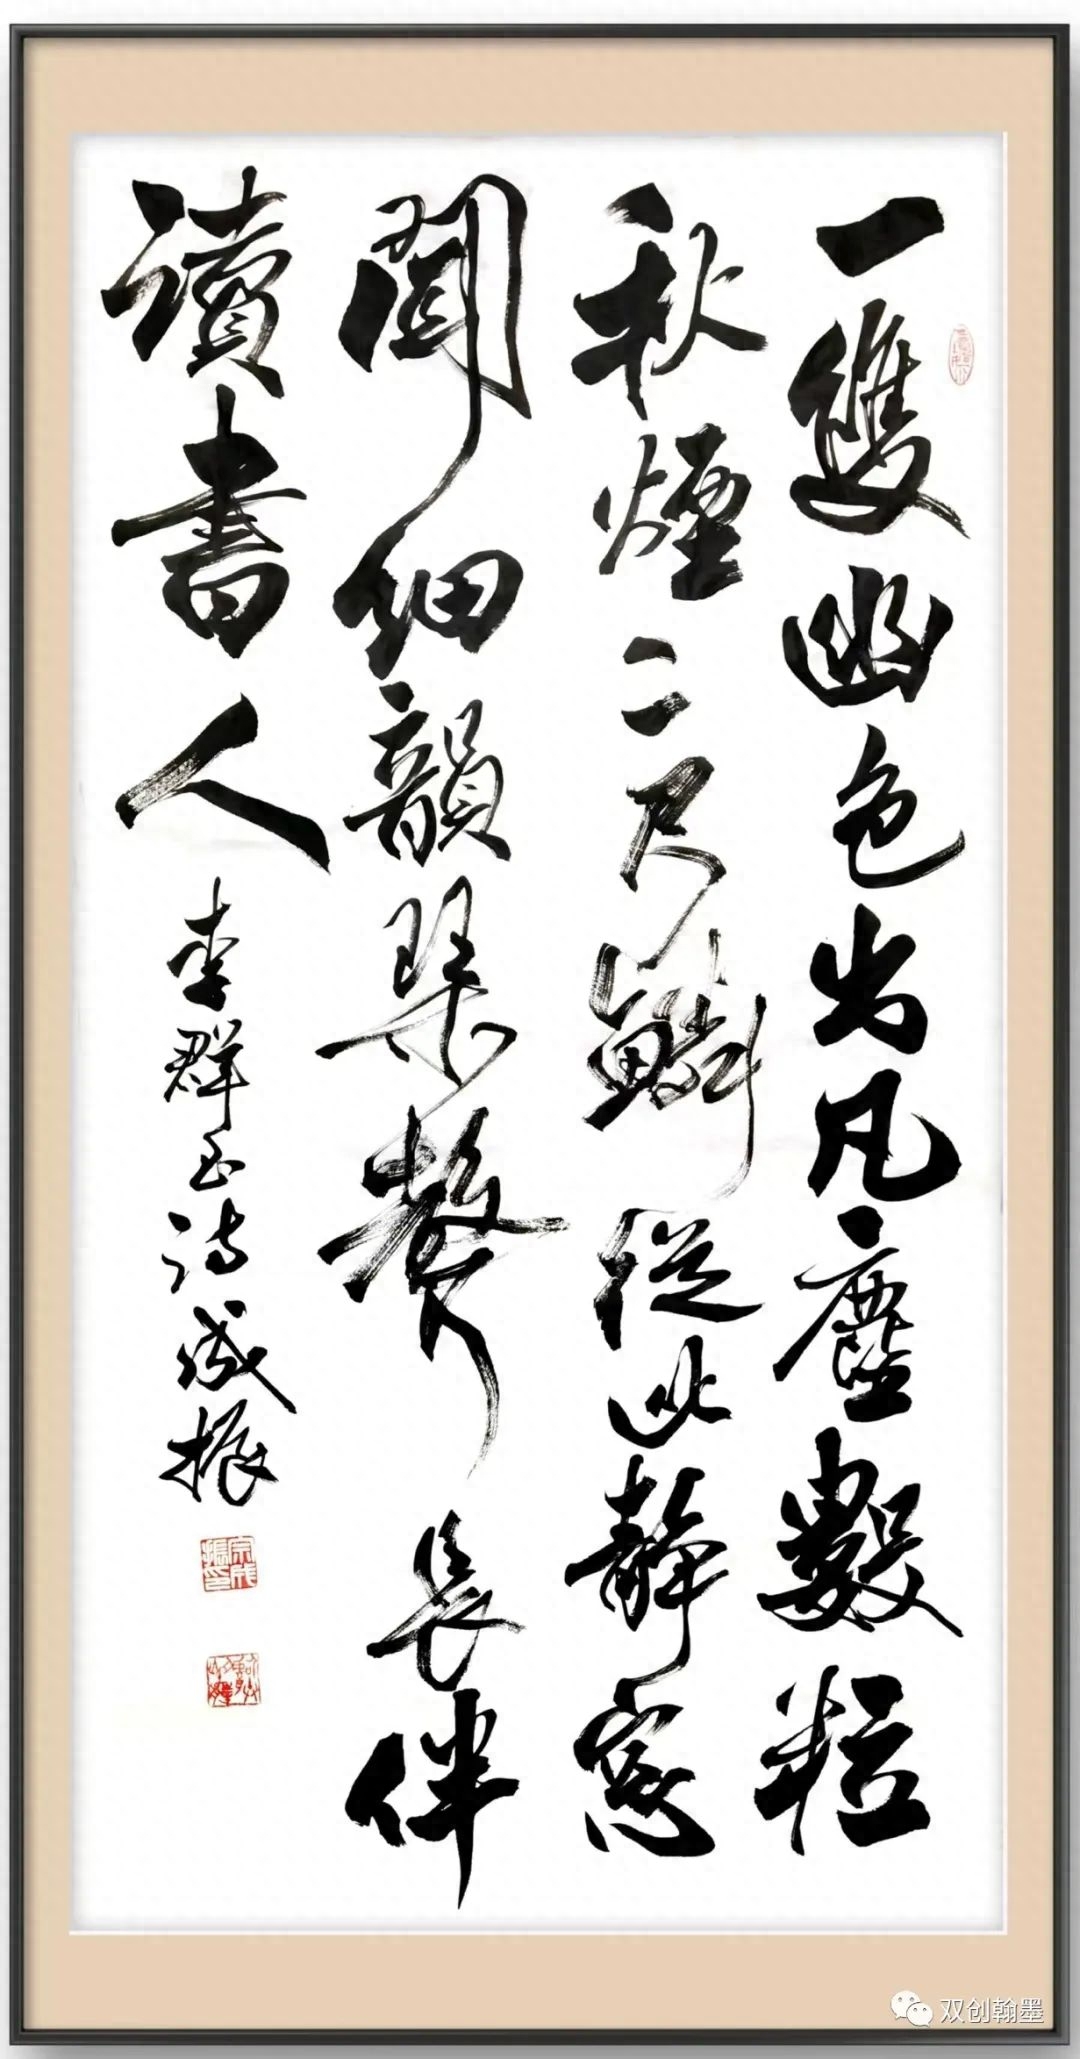 一雙幽色出凡塵數粒
秋煙二尺鱗從此靜窓
聞細韻琴聲長伴
讀書人
李群玉詩成振
宗成振印
双创翰墨